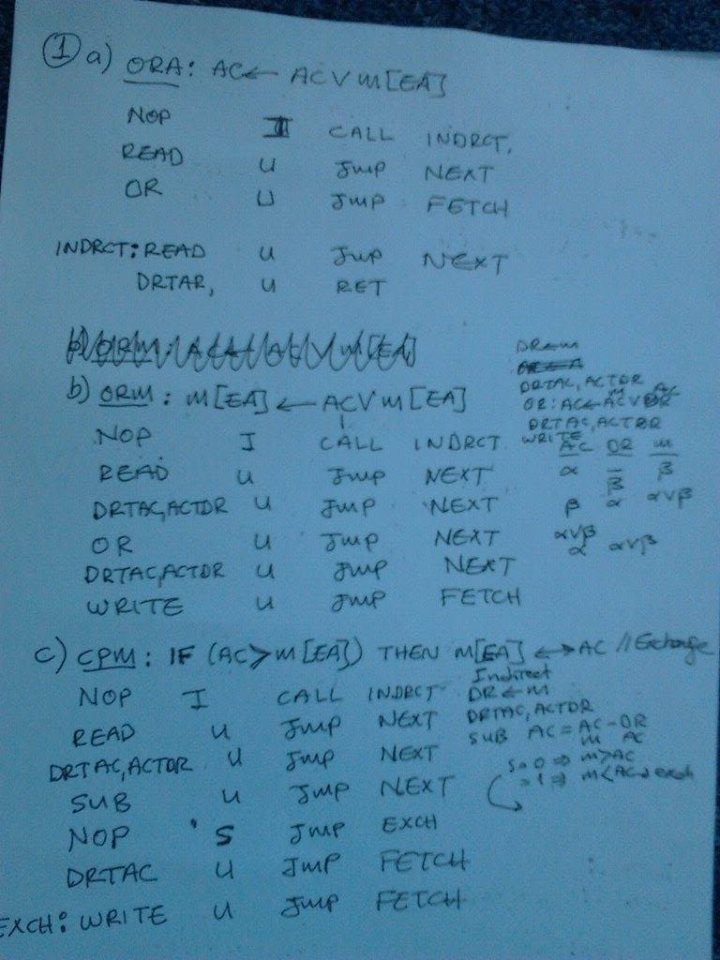 ① a) ORA: AC← AC∨M[EA]
NOP I CALL INDRCT.
READ U JMP NEXT
OR U JMP FETCH
INDRCT: READ U JMP NEXT
DRTAR, U RET
b) ORM : M[EA] ← AC∨M[EA]
NOP I CALL INDRCT
READ U JMP NEXT
DRTAC,ACTDR U JMP NEXT
OR U JMP NEXT
DRTAC,ACTDR U JMP NEXT
WRITE U JMP FETCH
DR←M
DRTAC, ACTDR
OR: AC←AC∨DR
DRTAC, ACTDR
WRITE
AC DR M
α – β
β
β α α∨β
α∨β
α α∨β
c) CPM : IF (AC>M[EA]) THEN M[EA] ↔ AC // Exchange
NOP I CALL INDRCT
READ U JMP NEXT
DRTAC,ACTDR U JMP NEXT
SUB U JMP NEXT
NOP S JMP EXCH
DRTAC U JMP FETCH
EXCH: WRITE U JMP FETCH
Indirect
DR←M
DRTAC, ACTDR
SUB AC = AC-DR
M AC
S=0 ⇒ M>AC
=1 ⇒ M<AC→exch